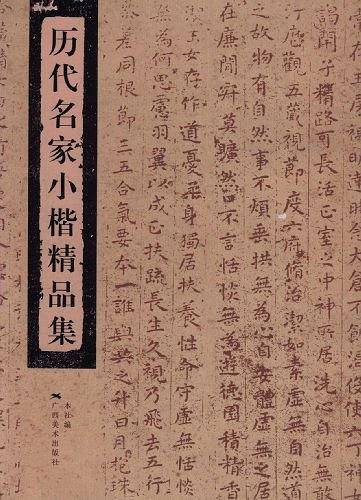 历代名家小楷精品集
本社编
广西美术出版社
子精路可長活正室之中神所居洗心自
歷觀五藏視節度六府脩治潔如素虛無自然
之故物有自然事不煩垂拱無為心自安體虛無之居
在廉間寂莫曠然口不言恬惔無為遊德園積精香
玉女存作道憂柔身獨居扶養性命守虛無恬惔
無為何思慮羽翼以成正扶疏長生久視乃飛去五行
參差同根節三五合氣要本一誰與共之升日月抱珠